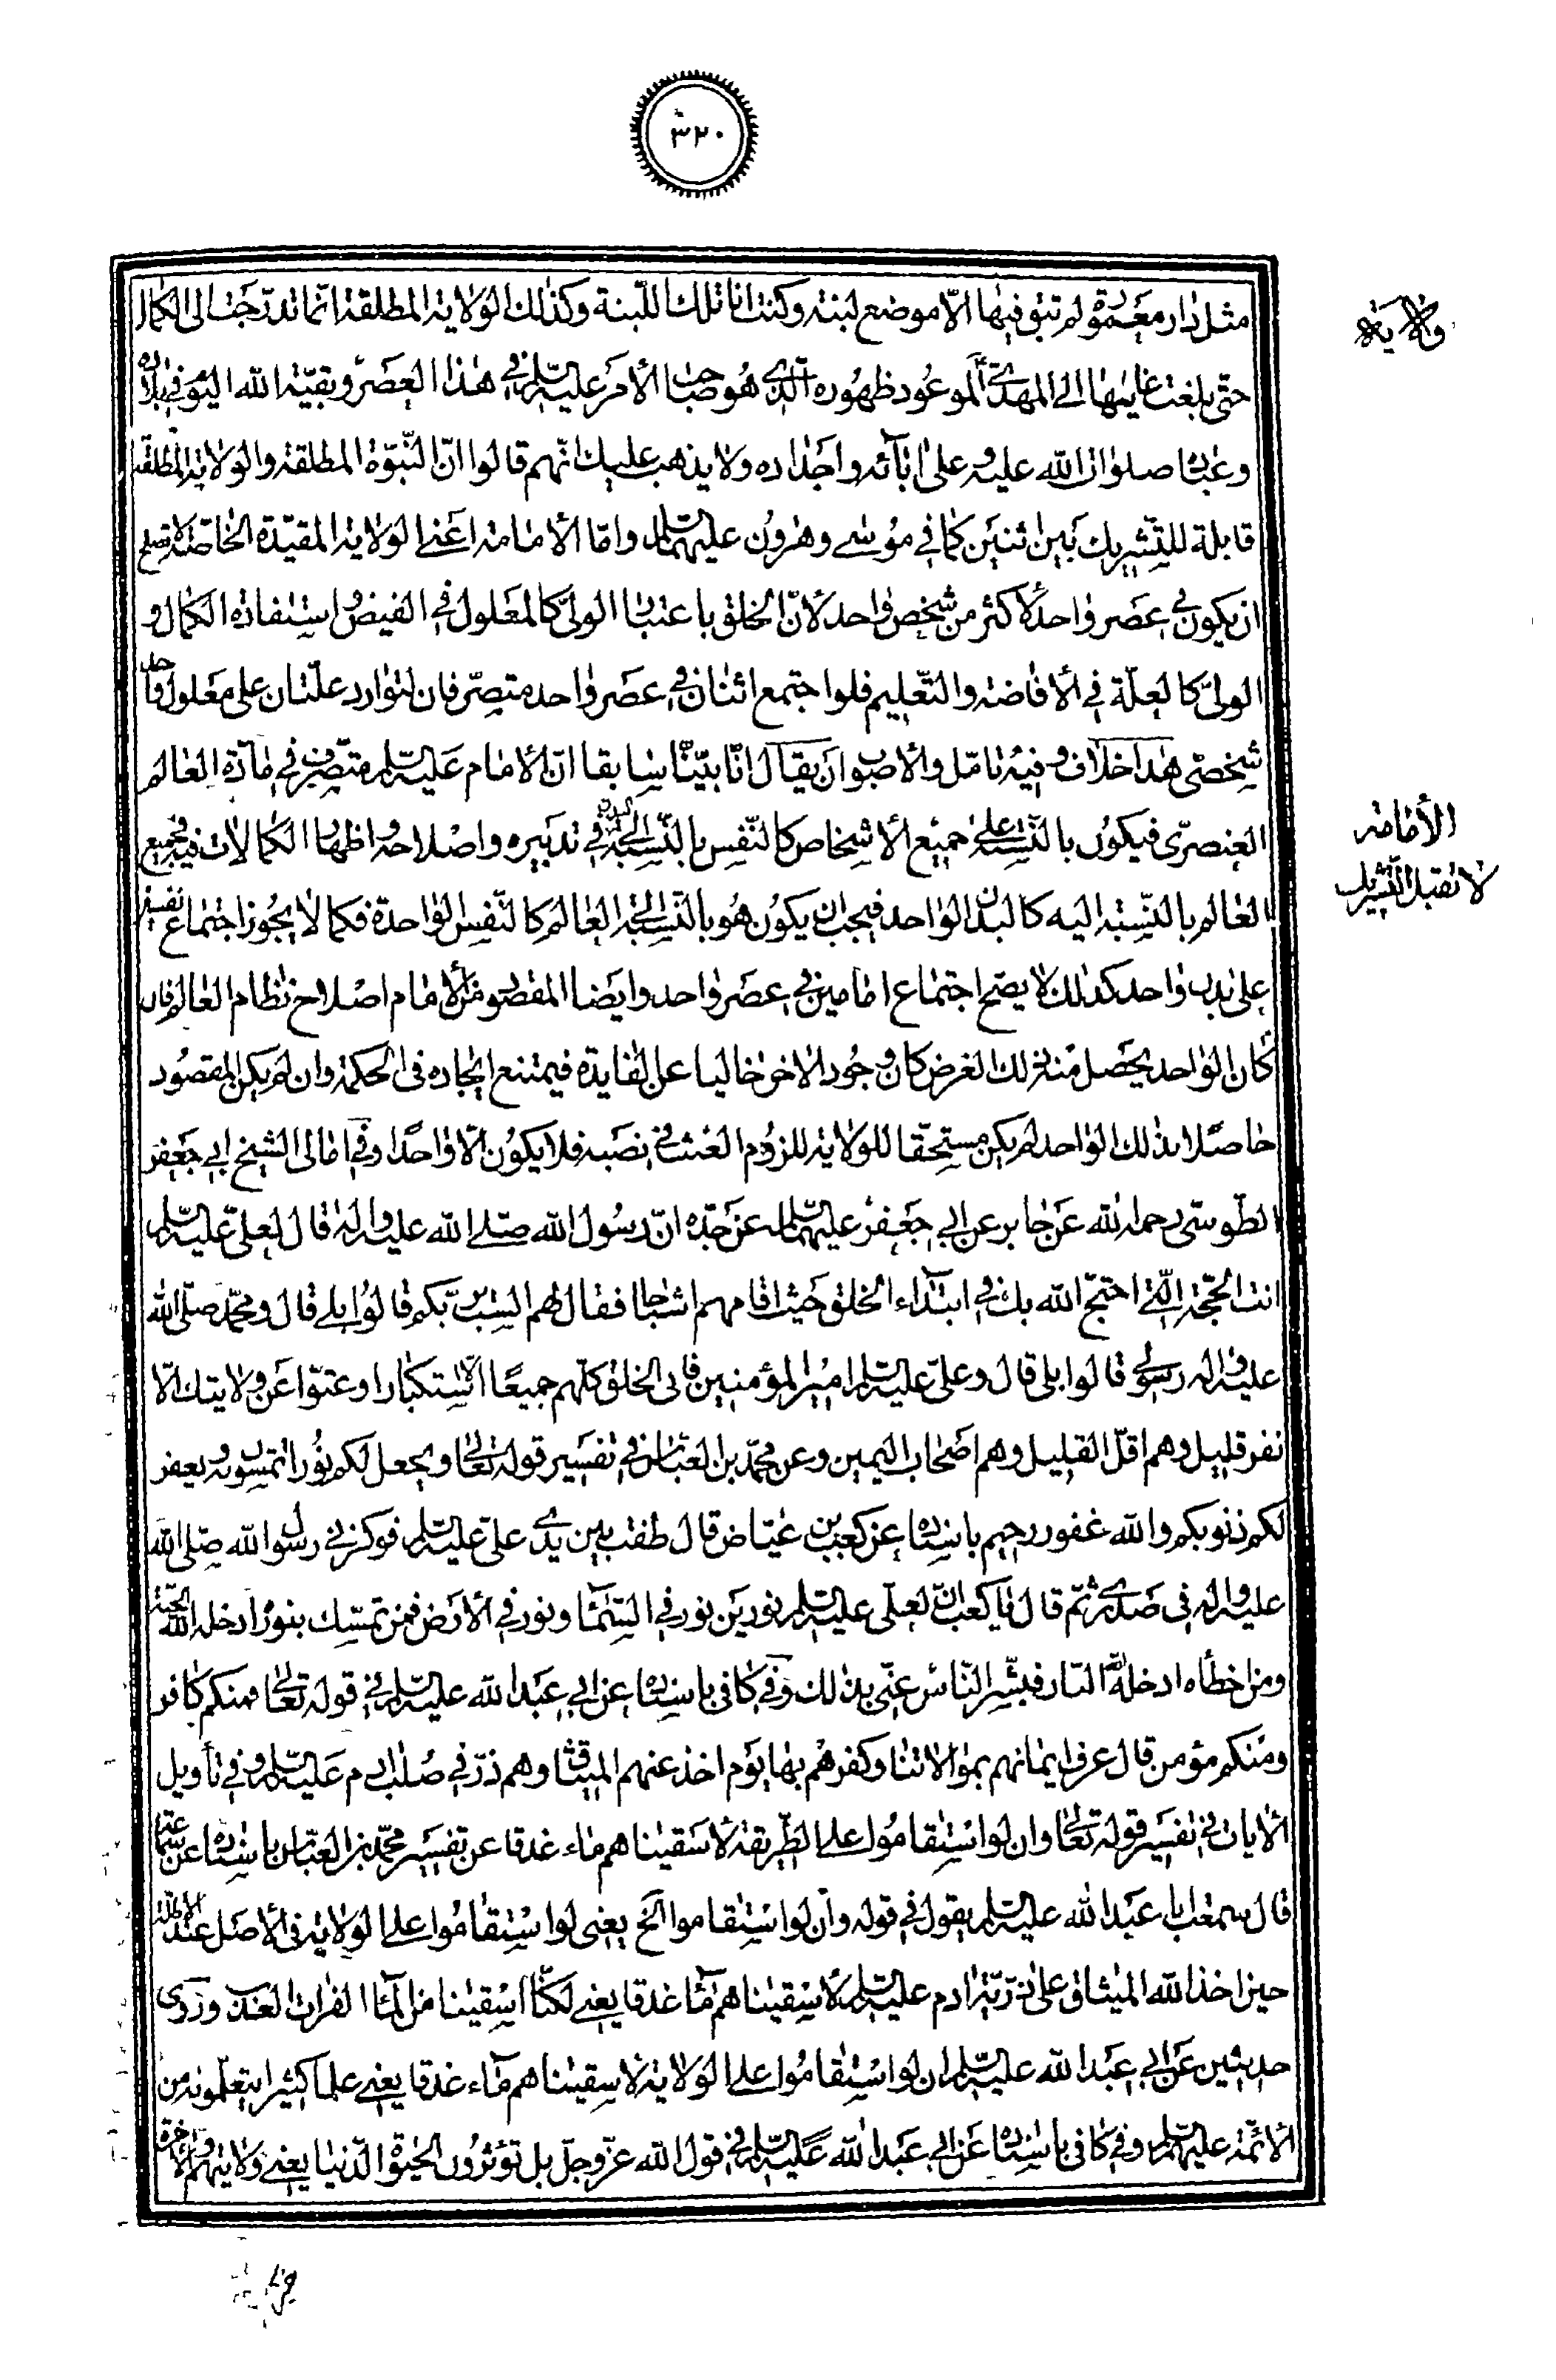 ٣٢٠
مثل دار معمورة لم تبق فيها الّا موضع لبنة وكنت انا تلك اللّبنة وكذلك الولاية المطلقة انّما تدرّجت الى الكمال
حتّى بلغت غايتها الى المهدىّ الموعود ظهوره الّذى هو صاحب الأمر عليه السّلم فى هذا العصر وبقيّة الله اليوم فى بلاده
وعباده صلوات الله عليه وعلى آبآئه واجداده ولا يذهب عليك انّهم قالوا انّ النّبوّة المطلقة والولاية المطلقة
قابلة للتّشريك بين اثنين كما فى موسى وهرون عليهما السّلم وامّا الأمامة اعنى الولاية المقيّدة الخاصّة لا تصلح
ان يكون فى عصر واحد لأكثر من شخص واحد لأنّ الخلق باعتبار الولىّ كالمعلول فى الفيض واستفادة الكمال و
الولىّ كالعلّة فى الأفاضة والتّعليم فلو اجتمع اثنان فى عصر واحد متصرّفان لتوارد علّتان على معلول واحد
شخصىّ هذا خلاف وفيه تامّل والأصوب ان يقال انّا بيّنّا سابقا انّ الأمام عليه السّلم متصرّف فى مادّة العالم
العنصرىّ فيكون بالنّسبة على جميع الأشخاص كالنّفس بالنّسبة الى البدن فى تدبيره واصلاحه واظهار الكمالات فيه فجميع
العالم بالنّسبة اليه كالبدن الواحد فيجب ان يكون هو بالنّسبة الى العالم كالنّفس الواحدة فكما لا يجوز اجتماع نفسين
على بدن واحد كذلك لا يصحّ اجتماع امامين فى عصر واحد وايضا المقصود من الأمام اصلاح نظام العالم فان
كان الواحد يحصل منه ذلك الغرض كان وجود الاخر خاليا عن الفايدة فيمتنع ايجاده فى الحكمة وان لم يكن المقصود
حاصلا بذلك الواحد لم يكن مستحقّا للولاية للزوم العبث فى نصبه فلا يكون الّا واحدًا وفى امالى الشيخ ابى جعفر
الطّوسىّ رحمه الله عن جابر عن ابى جعفر عليهما السّلم عن جدّه انّ رسول الله صلّى الله عليه واله قال لعلىّ عليه السّلم
انت الحجّة الّتى احتجّ الله بك فى ابتدآء الخلق حيث اقامهم اشباحا فقال لهم الست بربّكم قالوا بلى قال ومحمّد صلّى الله
عليه واله رسولى قالوا بلى قال وعلىّ عليه السّلم امير المؤمنين فابى الخلق كلّهم جميعًا الّا استكبارا وعتوّا عن ولايتك الّا
نفر قليل وهم اقلّ القليل وهم اصحاب اليمين وعن محمّد بن العبّاس فى تفسير قوله تعالى ويجعل لكم نورا تمشون به ويغفر
لكم ذنوبكم والله غفور رحيم باسناده عن كعب بن عيّاض قال طعنت بين يدى علىّ عليه السّلم فوكزنى رسول الله صلّى الله
عليه واله فى صدرى ثمّ قال يا كعب انّ لعلى عليه السّلم نورين نور فى السّمآء ونور فى الأرض فمن تمسّك بنوره ادخله الله الجنّة
ومن اخطأه ادخله الله النّار فبشّر النّاس عنّى بذلك وفى كافى باسناده عن ابى عبد الله عليه السّلم فى قوله تعالى فمنكم كافر
ومنكم مؤمن قال عرف ايمانهم بموالاتنا وكفرهم بها يوم اخذ عنهم الميثاق وهم ذرّ فى صلب ادم عليه السّلم وفى تأويل
الأيات فى تفسير قوله تعالى وان لو استقاموا على الطّريقة لأسقيناهم ماء غدقا عن تفسير محمّد بن العبّاس باسناده عن سماعة
قال سمعت ابا عبد الله عليه السّلم يقول فى قوله وان لو استقاموا الخ يعنى لو استقاموا على الولاية فى الأصل عند الأظلّة
حين اخذ الله الميثاق على ذرّيّة ادم عليه السّلم لأسقيناهم مآء غدقا يعنى لكنّا اسقينا من المآء الفرات العذب وروى
حديثين عن ابى عبد الله عليه السّلم ان لو استقاموا على الولاية لأسقيناهم مآء غدقا يعنى علما كثيرا يتعلّمونه من
الأئمّة عليهم السّلم وفى كافى باسناده عن ابى عبد الله عليه السّلم فى قول الله عزّ وجلّ بل تؤثرون الحيوة الدّنيا يعنى ولايتهم والأخرة
الأمامة
لا تقبل التّشريك